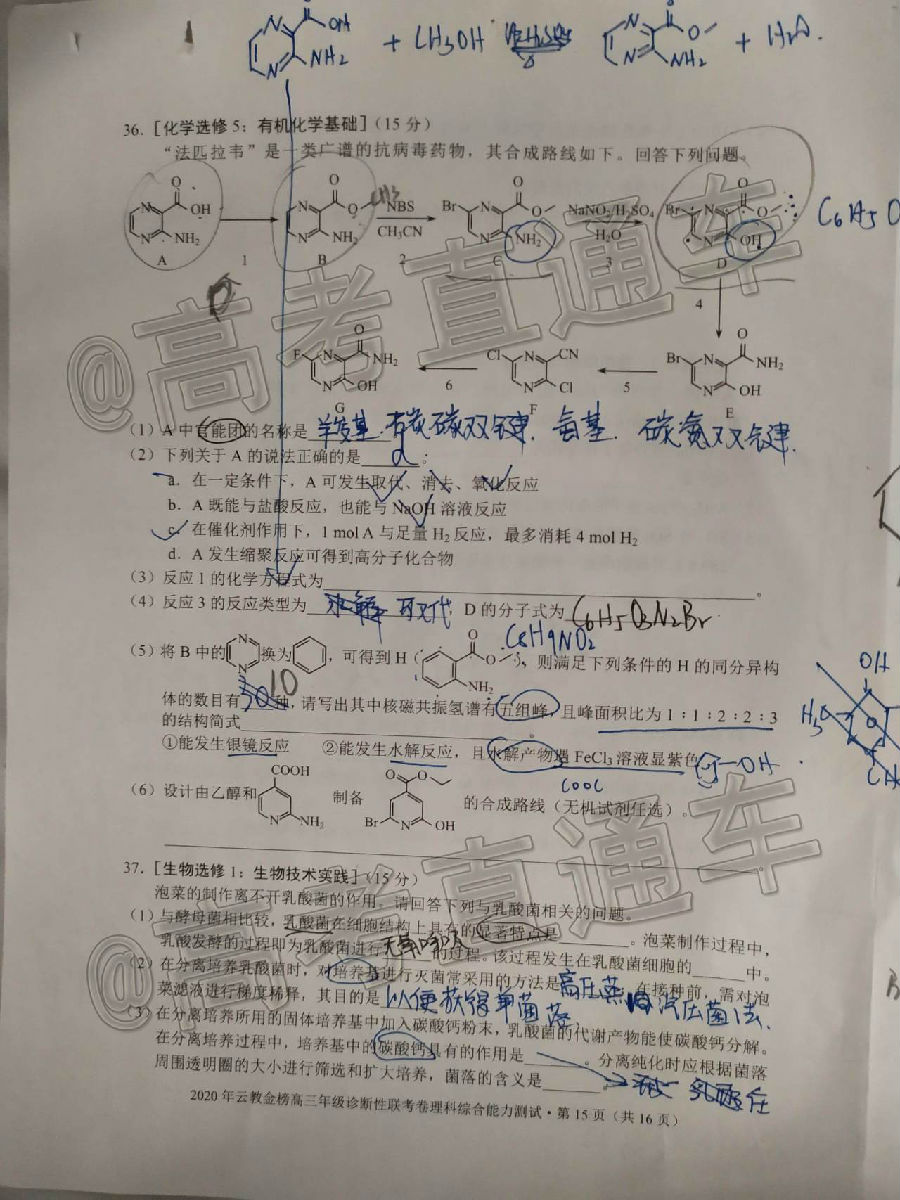 OH
NH₂ + CH3OH 浓H₂SO₄ △ O NH₂ + H₂O.
36.［化学选修5：有机化学基础］（15分）
“法匹拉韦”是一类广谱的抗病毒药物，其合成路线如下。回答下列问题。
A 1 B NBS CH₃CN 2 C NaNO₂/H₂SO₄ H₂O 3 D
4
G 6 F 5 E
（1）A中官能团的名称是 羧基. 有碳碳双键. 氨基. 碳氮双键.
（2）下列关于A的说法正确的是 d ；
a．在一定条件下，A可发生取代、消去、氧化反应
b．A既能与盐酸反应，也能与NaOH溶液反应
c．在催化剂作用下，1 mol A与足量H₂反应，最多消耗4 mol H₂
d．A发生缩聚反应可得到高分子化合物
（3）反应1的化学方程式为 。
（4）反应3的反应类型为 水解 取代 ，D的分子式为 C6H5O3N2Br
C8H9NO2
（5）将B中的 换为 ，可得到H（ ），则满足下列条件的H的同分异构
体的数目有 10 种，请写出其中核磁共振氢谱有五组峰，且峰面积比为1：1：2：2：3
的结构简式 。
①能发生银镜反应 ②能发生水解反应，且水解产物遇FeCl₃溶液显紫色
（6）设计由乙醇和 制备 的合成路线（无机试剂任选）。
37.［生物选修1：生物技术实践］（15分）
泡菜的制作离不开乳酸菌的作用。请回答下列与乳酸菌相关的问题。
（1）与酵母菌相比较，乳酸菌在细胞结构上具有的显著特点是 。泡菜制作过程中，
乳酸发酵的过程即为乳酸菌进行 无氧呼吸 的过程。该过程发生在乳酸菌细胞的 中。
（2）在分离培养乳酸菌时，对培养基进行灭菌常采用的方法是 高压蒸汽灭菌法. 在接种前，需对泡
菜滤液进行梯度稀释，其目的是 以便获得单菌落
（3）在分离培养所用的固体培养基中加入碳酸钙粉末，乳酸菌的代谢产物能使碳酸钙分解。
在分离培养过程中，培养基中的碳酸钙具有的作用是 。分离纯化时应根据菌落
周围透明圈的大小进行筛选和扩大培养，菌落的含义是
2020年云教金榜高三年级诊断性联考卷理科综合能力测试·第15页（共16页）
@高考直通车
@高考直通车